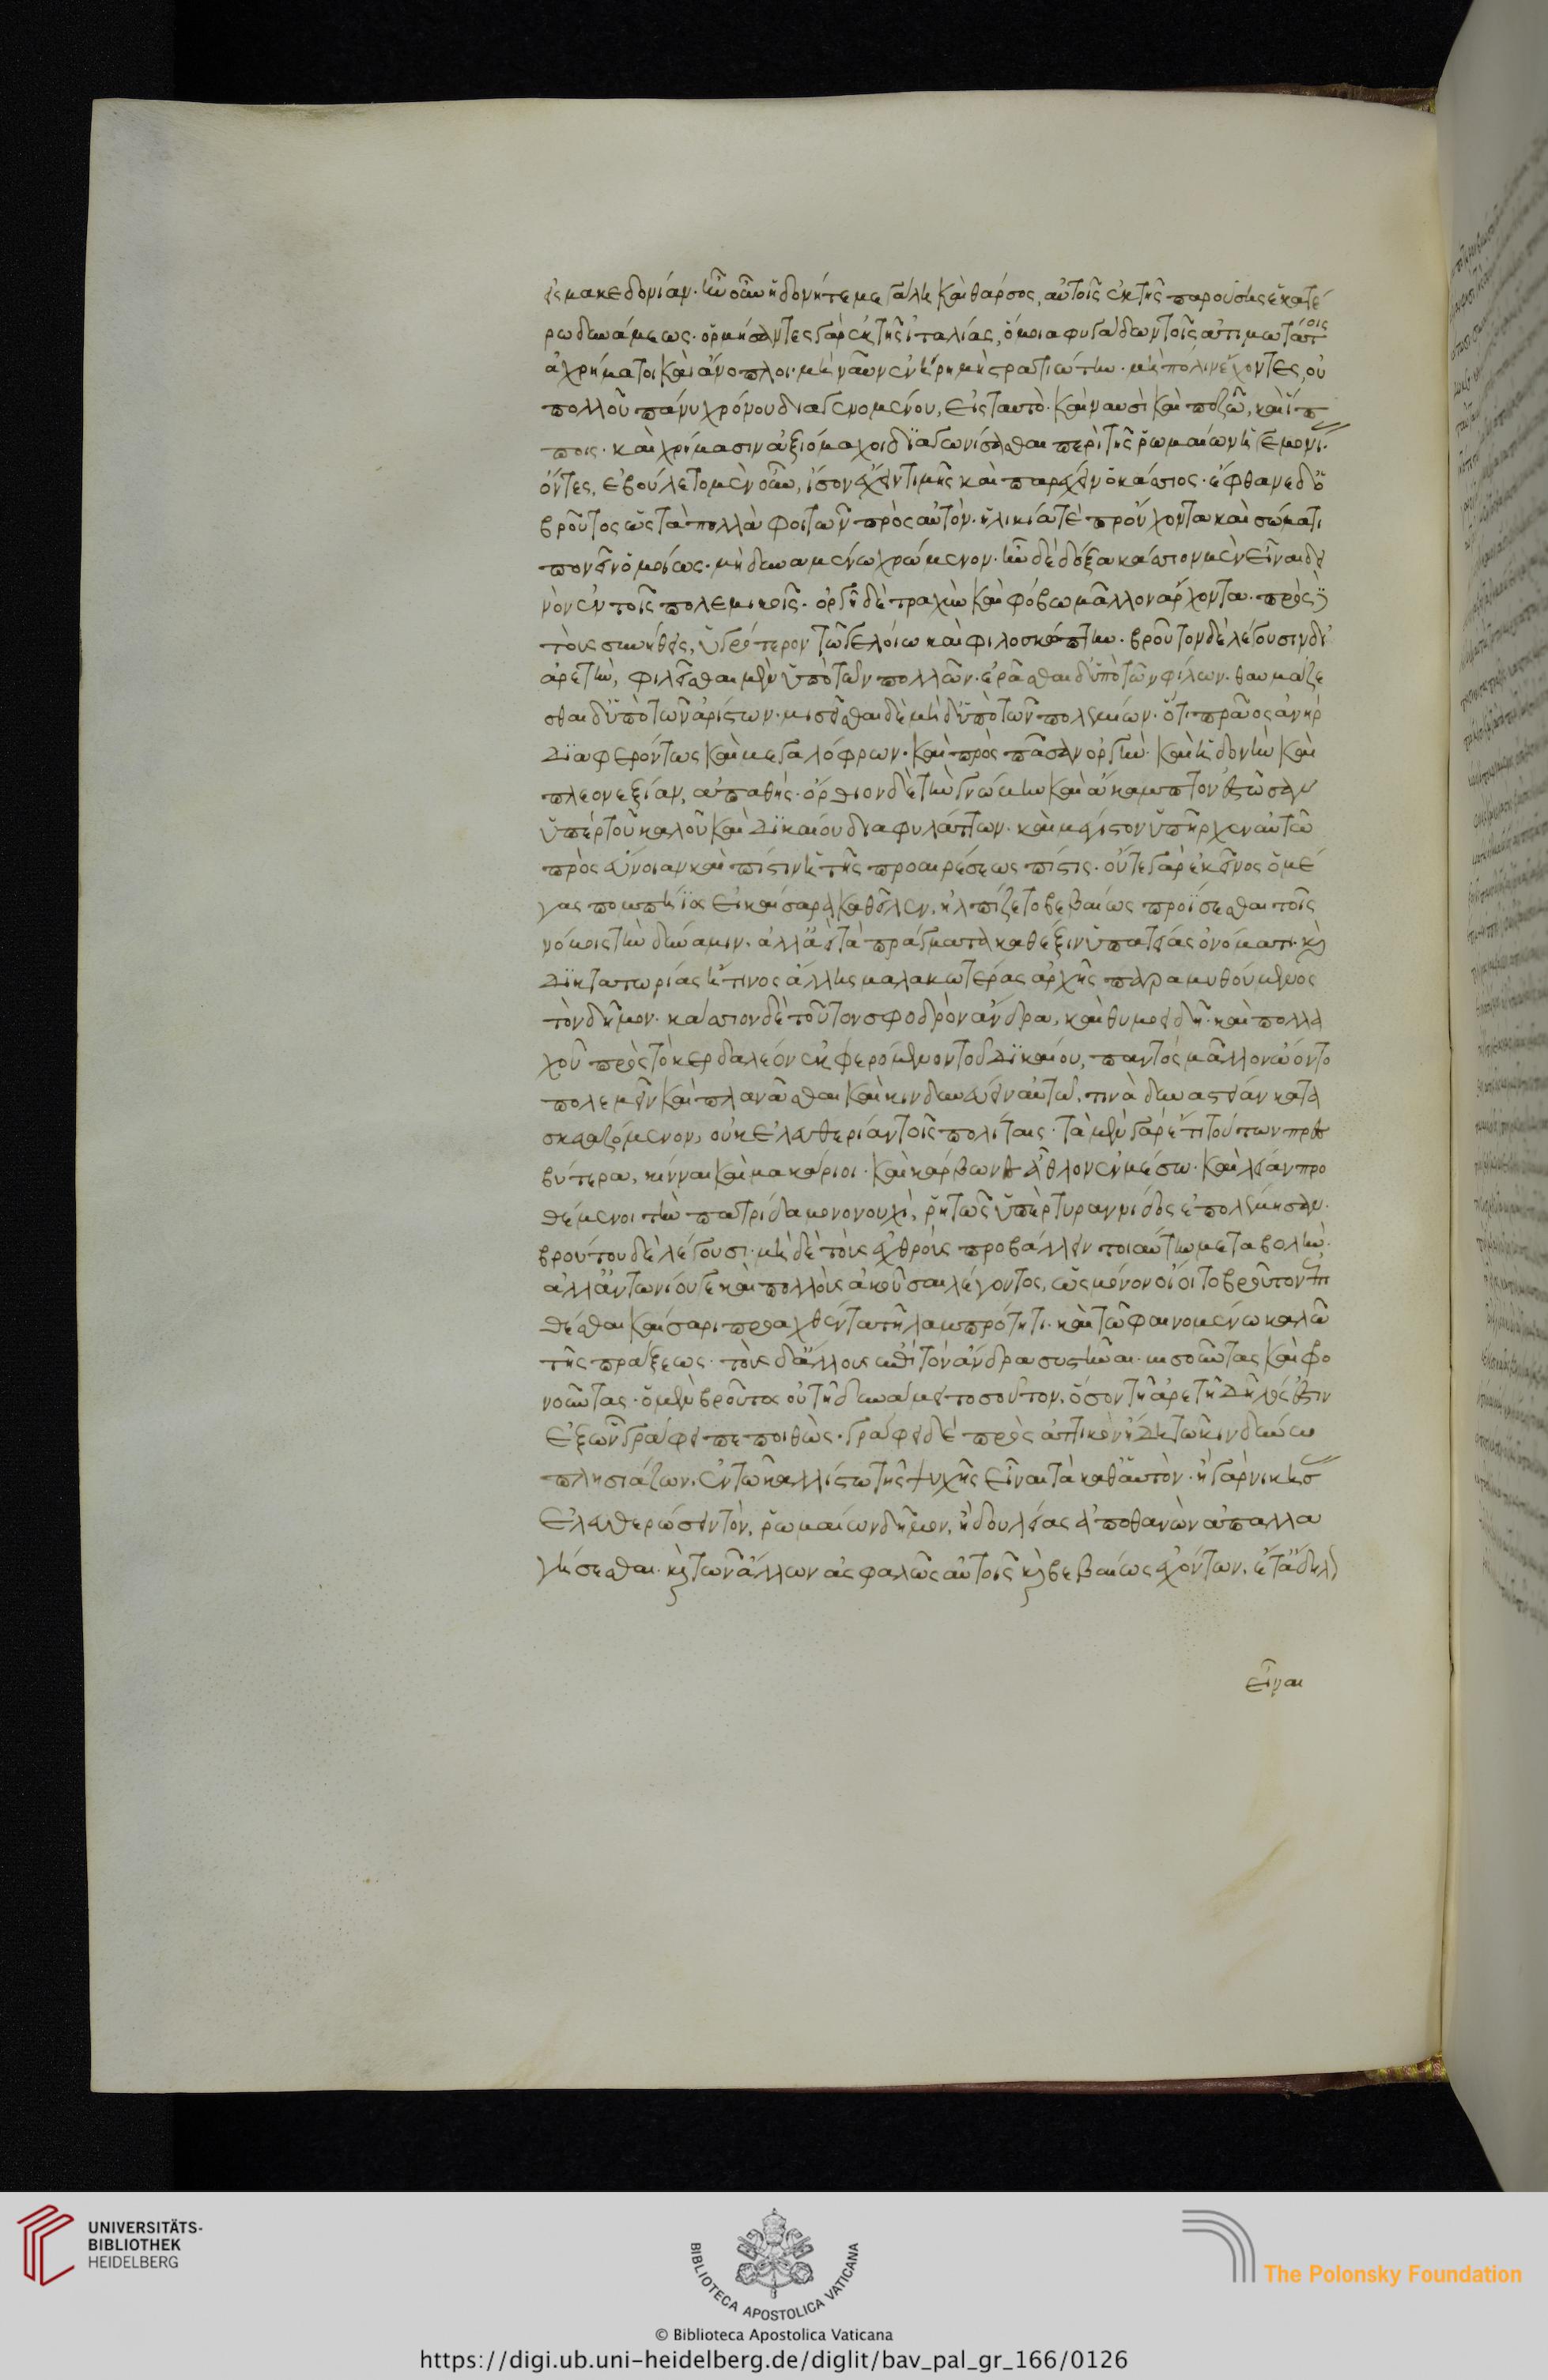 εἰς μακεδονίαν. ἦν οὖν ἡδονήτε μεγάλη καὶ θάρσος, αὐτοῖς ἐκ τῆς παρούσης ἑκατέ
ρω δυνάμεως. ὁρμήσαντες γὰρ ἐκ τῆς ἰταλίας, ὅμοια φυγάδων τοῖς ἀτιμωτάτοις
ἀχρήματοι καὶ ἄνοπλοι. μὴ ναῦν ἐνήρη μὴ στρατιώτην. μὴ πόλιν ἔχοντες, οὐ
πολλοῦ πάνυ χρόνου διαγενομένου, εἰς ταυτὸ. καὶ ναυσὶ καὶ πεζῶ, καὶ ἵπ
ποις. καὶ χρήμασιν ἀξιόμαχοι διαγωνίσασθαι περὶ τῆς ῥωμαίων ἡγεμονί.
ὄντες, ἐβούλετο μὲν οὖν, ἴσον ἔχειν τιμῆς καὶ παρέχειν ὁ κάσσιος. ἔφθανε δ' ὁ
βροῦτος ὡς τὰ πολλὰ φοιτῶν πρὸς αὐτόν. ἡλικίατε προύχοντα καὶ σώματι
πονεῖν ὁμοίως. μὴ δυναμένω χρώμενον. ἦν δὲ δόξα κάσσιον μὲν εἶναι δει
νὸν ἐν τοῖς πολεμικοῖς. ὀργῆ δὲ τραχὺν καὶ φόβω μᾶλλον ἄρχοντα. πρὸς
τοὺς συνήθεις, ὑγρότερον τῶ γελοίω καὶ φιλοσκώπτην. βροῦτον δὲ λέγουσιν δι'
ἀρετὴν, φιλεῖσθαι μὲν ὑπὸ τῶν πολλῶν. ἐρᾶσθαι δ' ὑπὸ τῶν φίλων. θαυμάζε
σθαι δ' ὑπὸ τῶν ἀρίστων. μισεῖσθαι δὲ μὴ δ' ὑπὸ τῶν πολεμίων. ὅτι πρᾶος ἀνὴρ
διαφερόντως καὶ μεγαλόφρων. καὶ πρὸς πᾶσαν ὀργὴν. καὶ ἡδονὴν καὶ
πλεονεξίαν, ἀπαθής. ὄρθιον δὲ τὴν γνώμην καὶ ἄκαμπτον ἑστῶσαν
ὑπὲρ τοῦ καλοῦ καὶ δικαίου διαφυλάττων. καὶ μέγιστον ὑπῆρχεν αὐτῶ
πρὸς εὔνοιαν καὶ πίστιν ἡ τῆς προαιρέσεως πίστις. οὔτε γὰρ ἐκεῖνος ὁ μέ
γας πομπήϊος εἰ καίσαρα καθεῖλεν, ἠλπίζετο βεβαίως προΐσεσθαι τοῖς
νόμοις τὴν δύναμιν. ἀλλ' ἀεὶ τὰ πράγματα καθέξειν ὑπατείας ὀνόματι. καὶ
δικτατωρίας ἤ τινος ἄλλης μαλακωτέρας ἀρχῆς παραμυθούμενος
τὸν δῆμον. κάσσιον δὲ τοῦτον σφοδρὸν ἄνδρα, καὶ θυμοειδῆ. καὶ πολλα
χοῦ πρὸς τὸ κερδαλέον ἐκφερόμενον τοῦ δικαίου, παντὸς μᾶλλον ᾤοντο
πολεμεῖν καὶ πλανᾶσθαι καὶ κινδυνεύειν αὐτῶ, τινὰ δυναστείαν κατα
σκευαζόμενον, οὐκ ἐλευθερίαν τοῖς πολίταις. τὰ μὲν γὰρ ἔτι τούτων πρεσ
βύτερα, κίνναι καὶ μακάριοι. καὶ κάρβωνες ἆθλον ἐν μέσω. καὶ λείαν προ
θέμενοι τὴν πατρίδα μονονουχὶ, ῥητῶς ὑπὲρ τυραννίδος ἐπολέμησαν.
βρούτου δὲ λέγουσι. μὴ δὲ τοὺς ἐχθροὺς προβάλλειν τοιαύτην μεταβολὴν.
ἀλλ' ἀντωνίου γε καὶ πολλοὺς ἀκοῦσαι λέγοντος, ὡς μόνον οἴοιτο βροῦτον ἐπι
θέσθαι καίσαρι προαχθέντα τῆ λαμπρότητι. καὶ τῶ φαινομένω καλῶ
τῆς πράξεως. τοὺς δ' ἄλλους ἐπὶ τὸν ἄνδρα συστῆναι. μισοῦντας καὶ φθο
νοῦντας. ὁ μὲν βροῦτος οὐ τῆ δυνάμει τοσοῦτον, ὅσον τῆ ἀρετῆ δῆλός ἐστιν
ἐξ ὧν γράφει πεποιθὼς. γράφει δὲ πρὸς ἀττικὸν ἤδη τῶ κινδύνω
πλησιάζων. ἐν τῶ καλλίστω τῆς τύχης εἶναι τὰ καθ' αὑτὸν. ἢ γὰρ νικήσ
ἐλευθερώσειν τὸν, ῥωμαίων δῆμον, ἢ δουλείας ἀποθανὼν ἀπαλλα
γήσεσθαι. καὶ τῶν ἄλλων ἀσφαλῶς αὐτοῖς καὶ βεβαίως ἐχόντων.
εἶναι
UNIVERSITÄTS-
BIBLIOTHEK
HEIDELBERG
BIBLIOTECA APOSTOLICA VATICANA
The Polonsky Foundation
© Biblioteca Apostolica Vaticana
https://digi.ub.uni-heidelberg.de/diglit/bav_pal_gr_166/0126